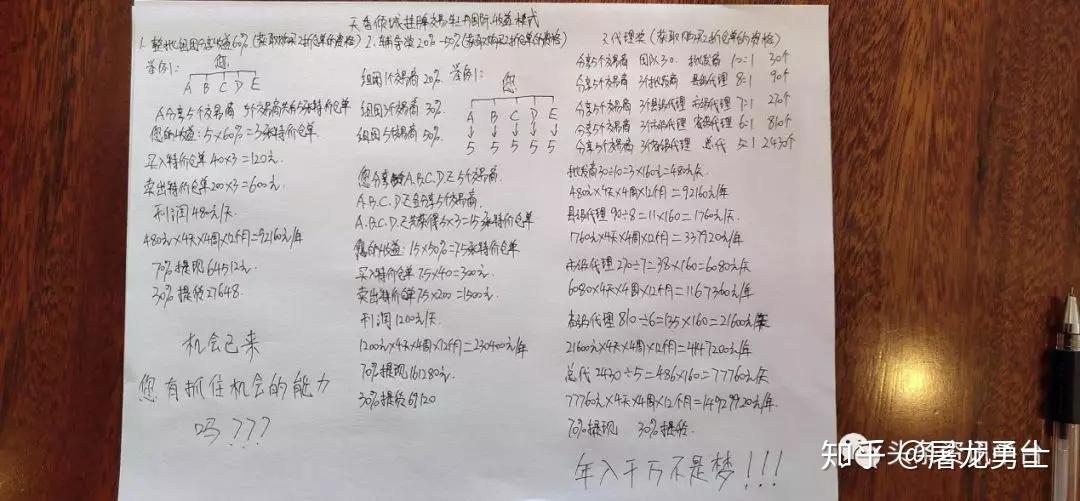 天香倾城挂牌交易
收益模式
1.
组团
收益60%(获取购买2折仓单的资格)
举例1:
您
A B C D E
A分享5个交易商 5个交易商共有5张特价仓单
您的收益:5×60%=3张特价仓单
买入特价仓单 40×3=120元
卖出特价仓单200×3=600元
利润480元/天
480元×4天×4周×12个月=92160元/年
70%提现64512元
30%提货27648
机会已来
您有抓住机会的能力
吗???
2、辅导奖20%-50%(获取购买2折仓单的资格)
组团1个交易商 20%
组团3个交易商 30%
组团5个交易商 50%
举例1:
您
A B C D E
5 5 5 5 5
您分享A.B.C.D.E5个交易商
A.B.C.D.E各分享5个交易商
A.B.C.D.E共获得5×3=15张特价仓单
您的收益:15×50%=7.5张特价仓单
买入特价仓单7.5×40=300元
卖出特价仓单7.5×200=1500元
利润1200元/天
1200元×4天×4周×12个月=230400元/年
70%提现161280元
30%提货69120
3.代理奖(获取购买2折仓单的资格)
分享5个交易商 团队30 批发商 10=1 30个
分享5个交易商 3个批发商 县级代理 8=1 90个
分享5个交易商 3个县级代理 市级代理 7=1 270个
分享5个交易商 3个市级代理 省级代理 6=1 810个
分享5个交易商 3个省级代理 总代 5=1 2430个
批发商30÷10=3×160元=480元/天
480元×4天×4周×12个月=92160元/年
县级代理 90÷8=11×160=1760元/天
1760元×4天×4周×12个月=337920元/年
市级代理 270÷7=38×160=6080元/天
6080×4天×4周×12个月=1167360元/年
省级代理 810÷6=135×160=21600元/天
21600元×4天×4周×12个月=4147200元/年
总代 2430÷5=486×160=77760元/天
77760元×4天×4周×12个月=14929920元/年
70%提现 30%提货
年入千万不是梦!!!
知乎 @屠龙勇士
头条